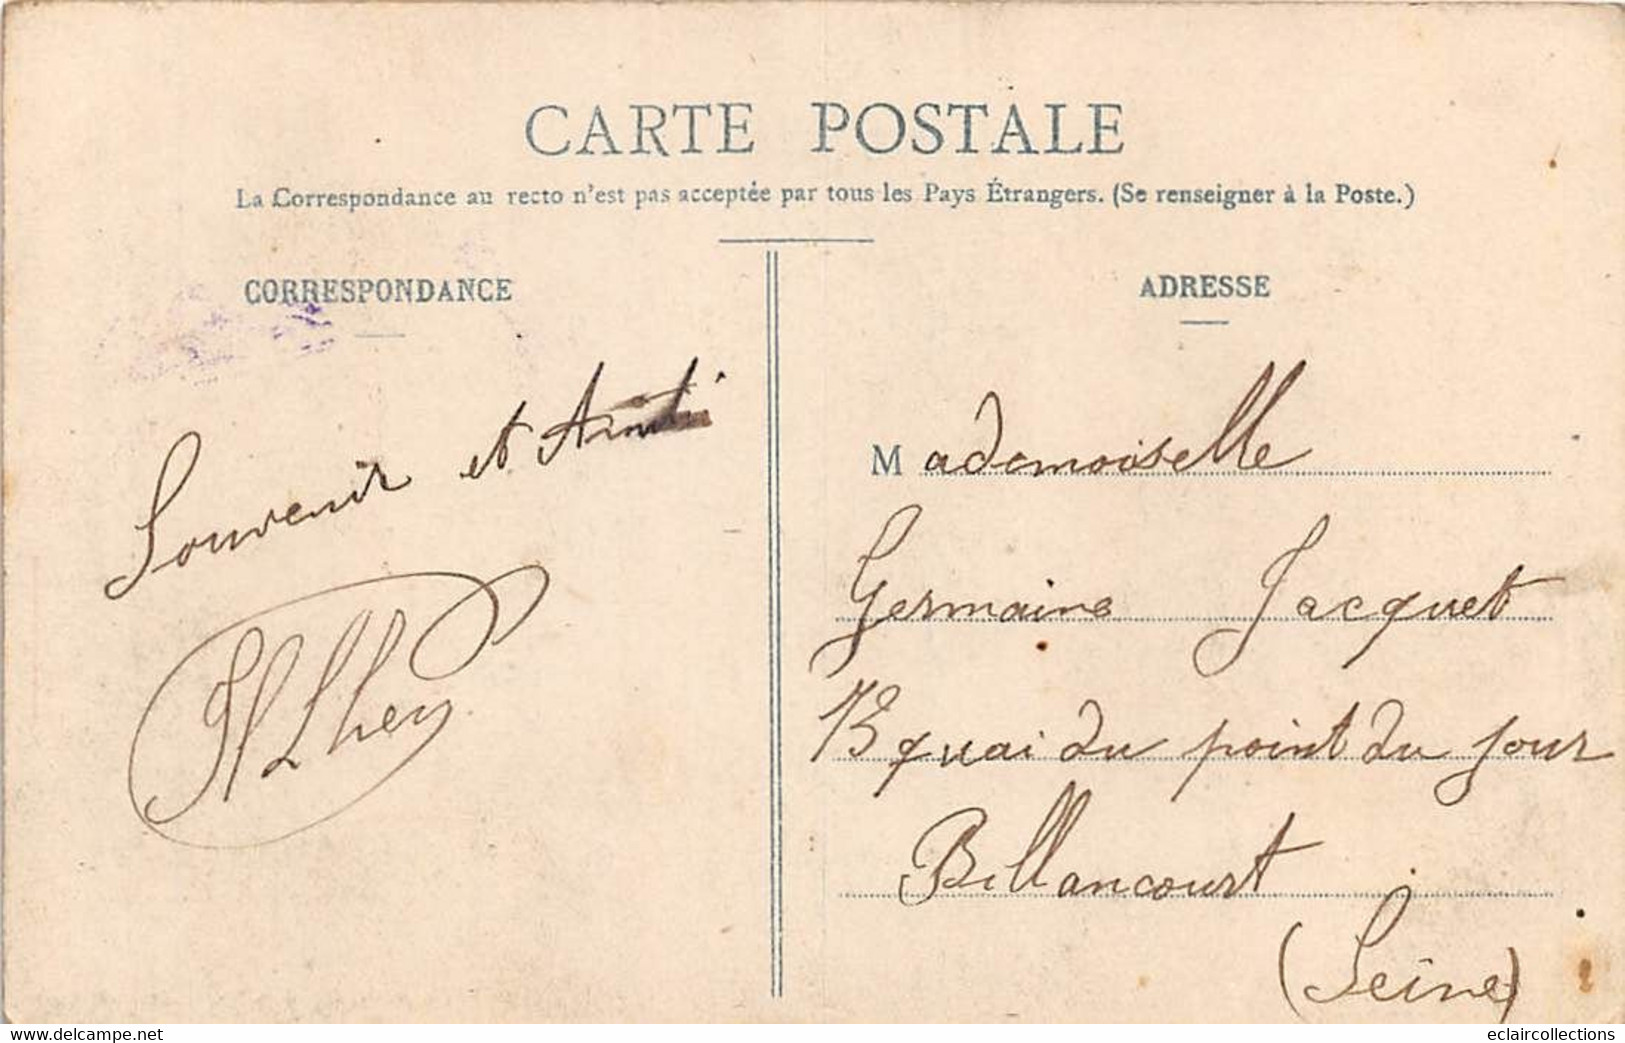 CARTE POSTALE
La Correspondance au recto n'est pas acceptée par tous les Pays Étrangers. (Se renseigner à la Poste.)
CORRESPONDANCE
Souvenir et
ADRESSE
Mademoiselle
Germaine Jacquet
13 quai du point du jour
Billancourt
(Seine)
eclaircollections